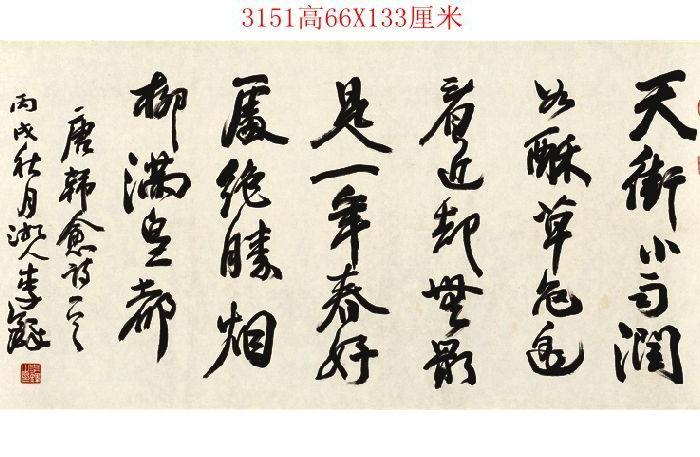 3151高66X133厘米
天街小雨潤
如酥草色遥
看近却無最
是一年春好
處絶勝烟
柳滿皇都
唐韩愈诗一首
丙戌秋月湖人李